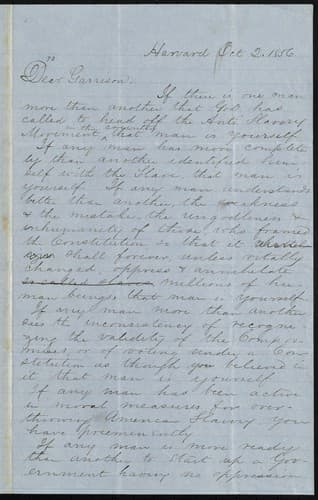 Harvard Oct 2. 1856
Dear Garrison.
If there is one man
more than another that God has
called to head off the Anti Slavery
in this country
Movement, that man is yourself
If any man has more complete
ly than another identified him
self with the Slave that man is
yourself. If any man understands
better than another, the weakness
& the mistake, the ungodliness &
inhumanity of those who framed
the Constitution so that it
shall forever, unless vitally
changed, oppress & annihilate
millions of hu
man beings, that man is yourself
If any man more than another
sees the inconsistency of recogni
zing the validity of the Comprom
mises, or of voting under a Con
stitution as though you believed in
it that man is yourself
If any man has been active
in moral measures for over
throwing American Slavery you
have preeminently
If any man is more ready
than another to start up a Gov
ernment having no oppression